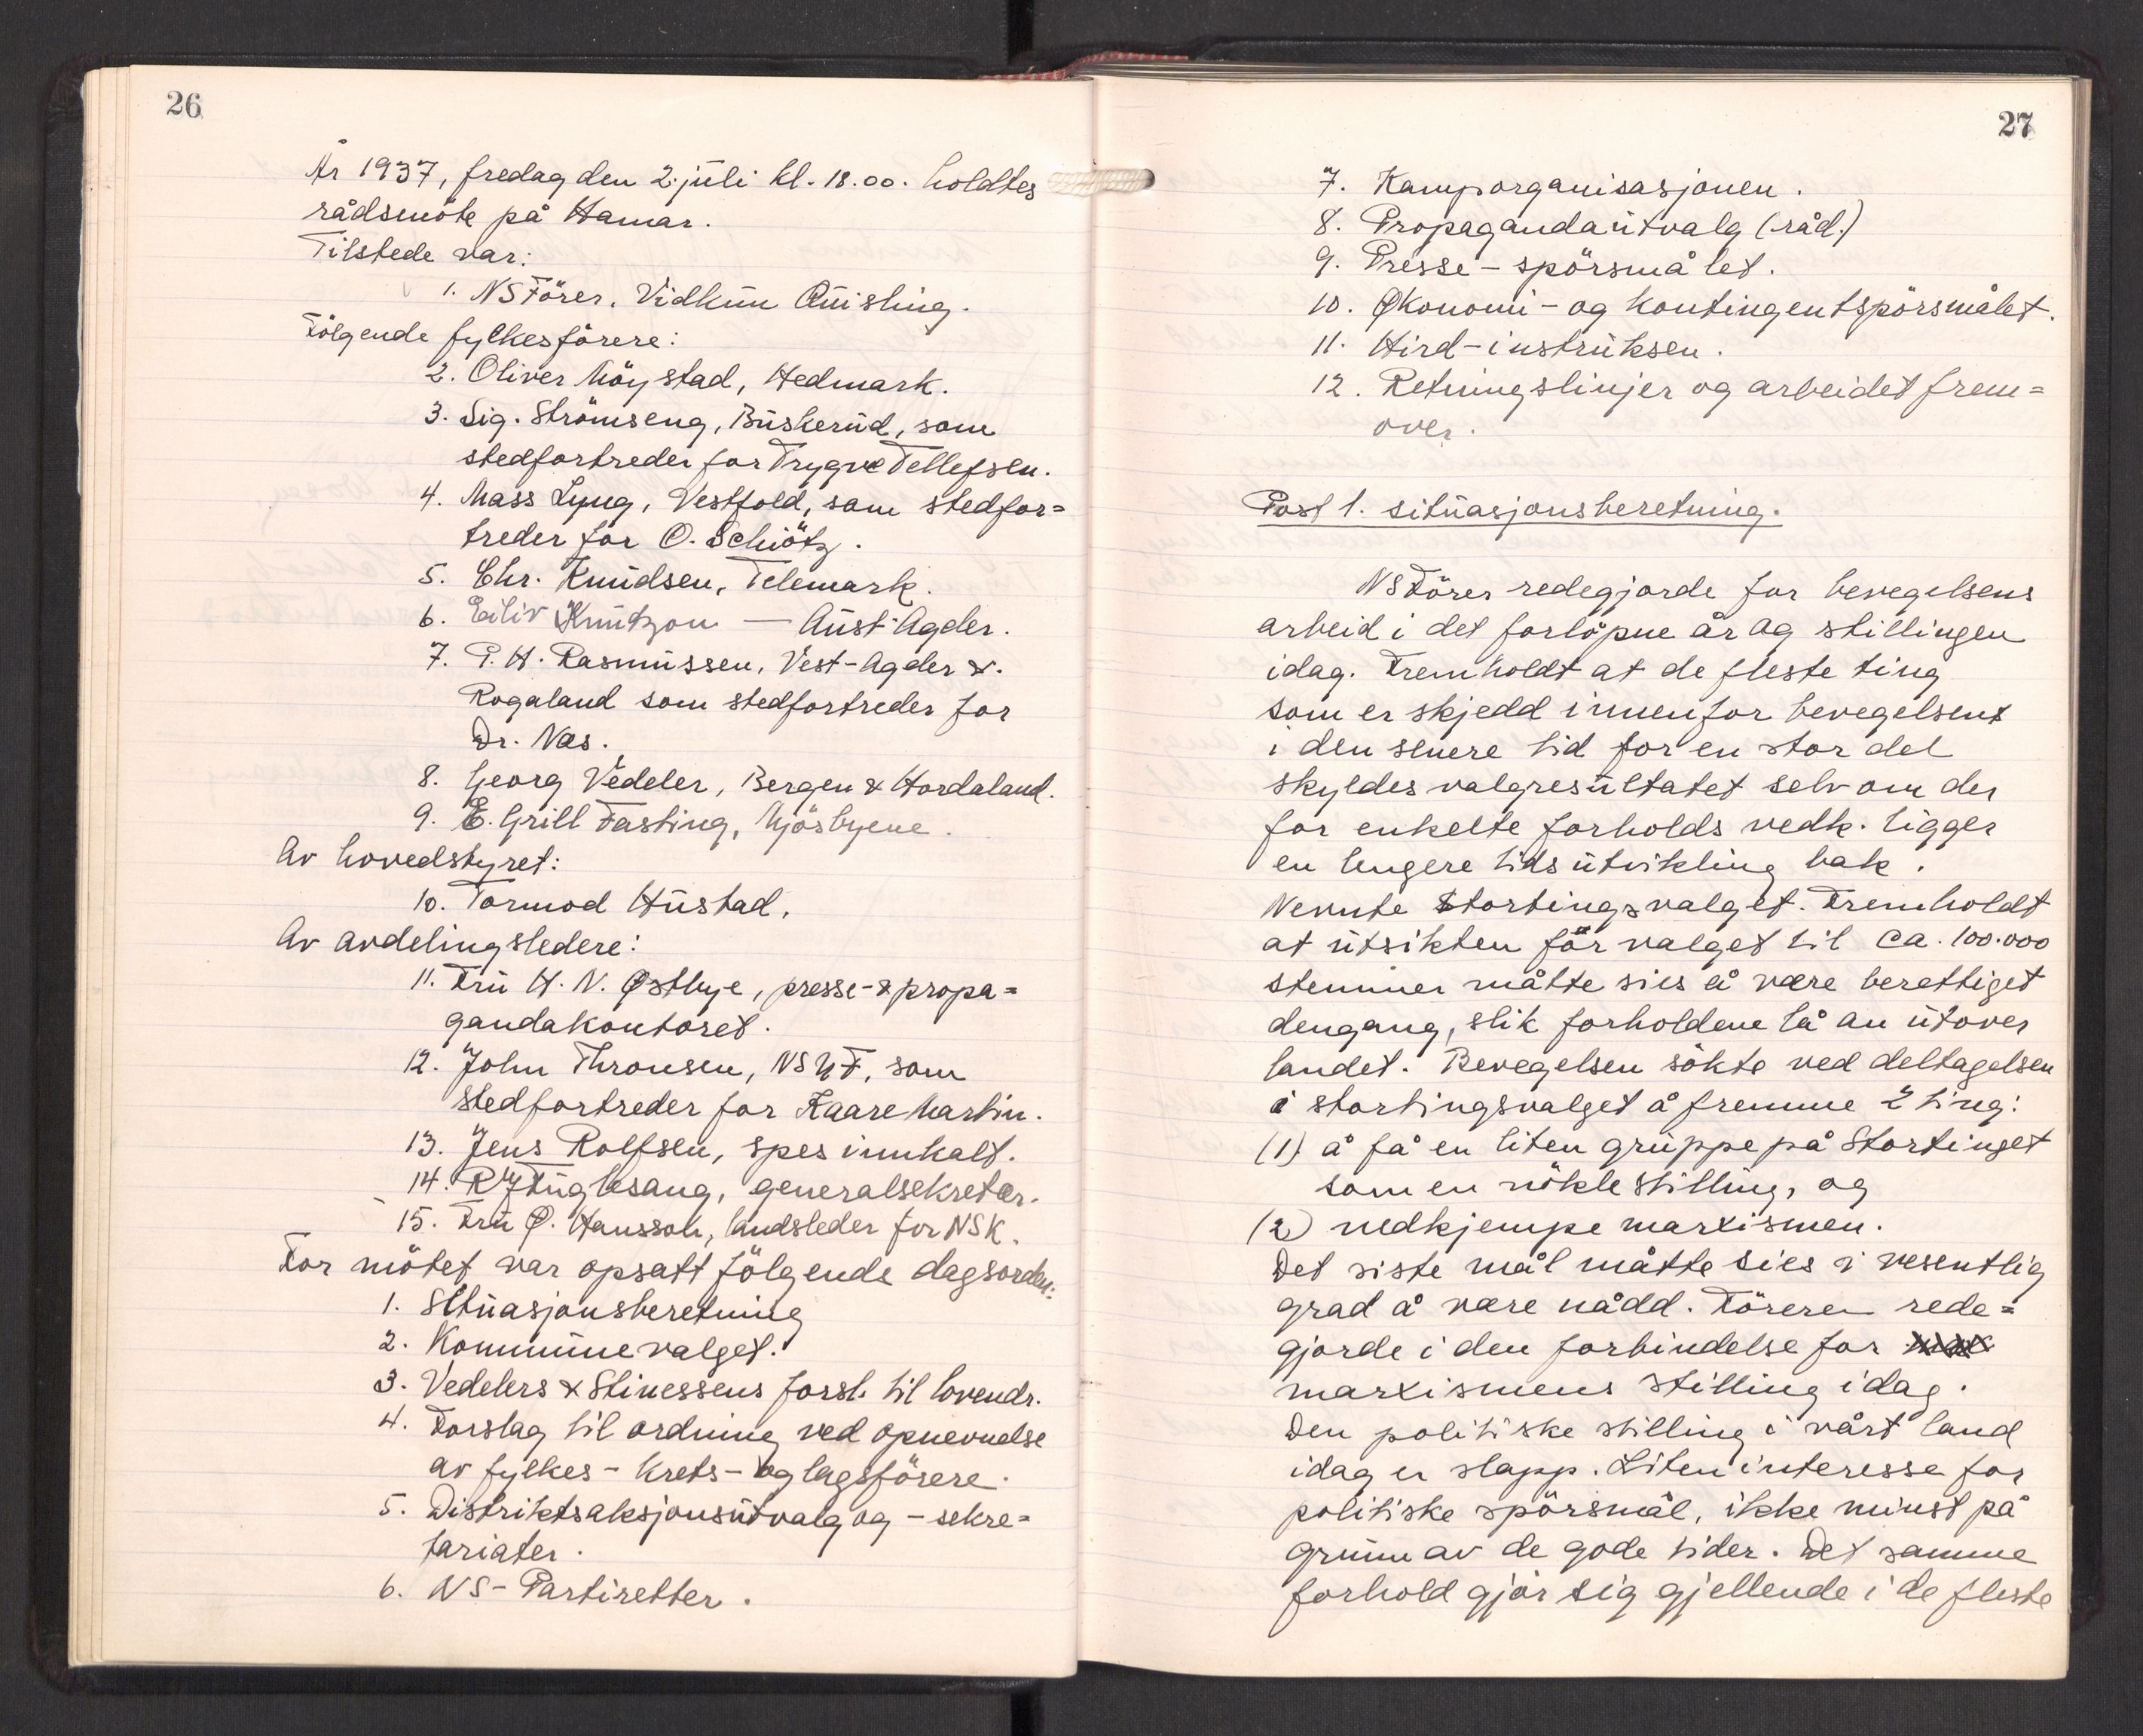 26
År 1937, fredag den 2. juli kl. 18.00. holdtes
rådsmöte på Hamar.
Tilstede var:
1. NS Förer, Vidkun Quisling.
Fölgende fylkesförere:
2. Oliver Möystad, Hedmark.
3. Sig. Strömseng, Buskerud, som
stedfortreder for Trygve Tellefsen.
4. Mass Lyng, Vestfold, som stedfor=
treder for O. Schiötz.
5. Chr. Knudsen, Telemark.
6. Eiliv Knutzon — Aust-Agder.
7. P. H. Rasmussen, Vest-Agder &.
Rogaland som stedfortreder for
Dr. Næs.
8. Georg Vedeler, Bergen & Hordaland.
9. E. Grill Fasting, Mjösbyene.
Av hovedstyret:
10. Tormod Hustad.
Av avdelingsledere:
11. Fru H. N. Østbye, presse- & propa=
gandakontoret.
12. John Thronsen, NSUF, som
stedfortreder for Kaare Martin.
13. Jens Rolfsen, spes innkalt.
14. R. Fuglesang, generalsekretær.
15. Fru O. Hansson, landsleder for NSK.
For mötet var opsatt fölgende dagsorden:
1. Situasjonsberetning
2. Kommunevalget.
3. Vedelers & Stinessens forsl. til lovendr.
4. Forslag til ordning ved opnevnelse
av fylkes- krets- og lagsförere.
5. Distriktsaksjonsutvalg og -sekre=
tariater.
6. NS-Partiretter.
27
7. Kamporganisasjonen.
8. Propagandautvalg (råd.)
9. Presse-spörsmålet.
10. Økonomi- og kontingentspörsmålet.
11. Hird-instruksen.
12. Retningslinjer og arbeidet frem=
over.
Post 1. situasjonsberetning.
NS Förer redegjorde for bevegelsens
arbeid i det forlöpne år og stillingen
idag. Fremholdt at de fleste ting
som er skjedd innenfor bevegelsens
i den senere tid for en stor del
skyldes valgresultatet selv om der
for enkelte forholds vedk. ligger
en lengere tids utvikling bak.
Nevnte Stortingsvalget. Fremholdt
at utsikten för valget til ca. 100.000
stemmer måtte sies å være berettiget
dengang, slik forholdene lå an utover
landet. Bevegelsen sökte ved deltagelsen
i stortingsvalget å fremme 2 ting:
(1) å få en liten gruppe på Stortinget
som en nöklestilling, og
(2) nedkjempe marxismen.
Det siste mål måtte sies i vesentlig
grad å være nådd. Föreren rede=
gjorde i den forbindelse for
marxismens stilling idag.
Den politiske stilling i vårt land
idag er slapp. Liten interesse for
politiske spörsmål, ikke minst på
grunn av de gode tider. Det samme
forhold gjör sig gjellende i de fleste